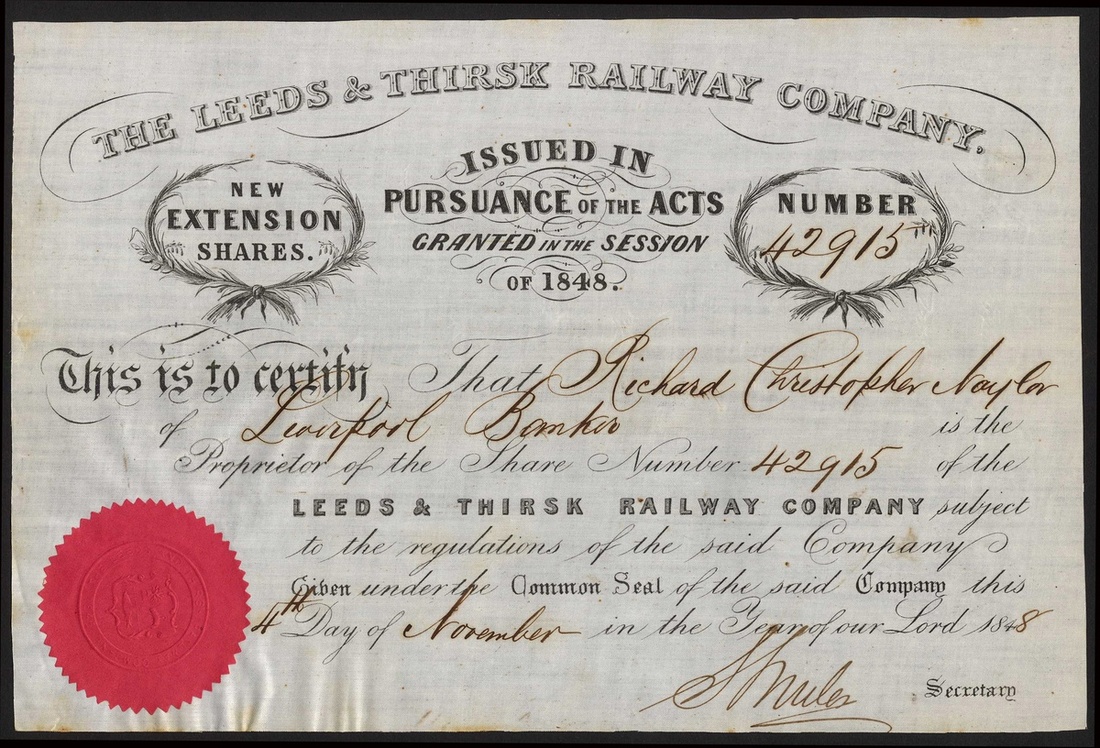 THE LEEDS & THIRSK RAILWAY COMPANY.
NEW
EXTENSION
SHARES.
ISSUED IN
PURSUANCE OF THE ACTS
GRANTED IN THE SESSION
OF 1848.
NUMBER
42915TH
This is to certify That Richard Christopher Naylor
of Liverpool Banker is the
Proprietor of the Share Number 42915 of the
LEEDS & THIRSK RAILWAY COMPANY subject
to the regulations of the said Company
Given under the Common Seal of the said Company this
4th Day of November in the Year of our Lord 1848
Secretary